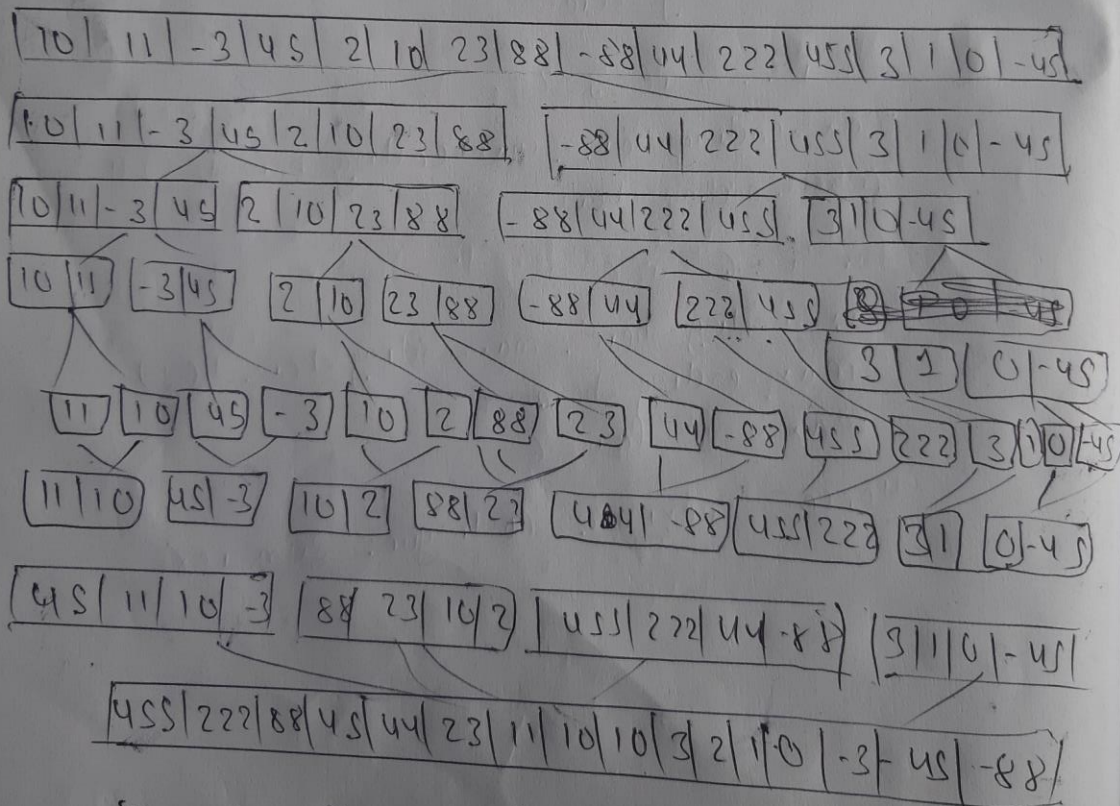 10 | 11 | -3 | 45 | 2 | 10 | 23 | 88 | -88 | 44 | 222 | 455 | 3 | 1 | 0 | -45
10 | 11 | -3 | 45 | 2 | 10 | 23 | 88 -88 | 44 | 222 | 455 | 3 | 1 | 0 | -45
10 | 11 | -3 | 45 2 | 10 | 23 | 88 -88 | 44 | 222 | 455 3 | 1 | 0 | -45
10 | 11 -3 | 45 2 | 10 23 | 88 -88 | 44 222 | 455
3 | 1 0 | -45
11 10 45 -3 10 2 88 23 44 -88 455 222 3 1 0 -45
11 | 10 45 | -3 10 | 2 88 | 23 44 | -88 455 | 222 3 | 1 0 | -45
45 | 11 | 10 | -3 88 | 23 | 10 | 2 455 | 222 | 44 | -88 3 | 1 | 0 | -45
455 | 222 | 88 | 45 | 44 | 23 | 11 | 10 | 10 | 3 | 2 | 1 | 0 | -3 | -45 | -88